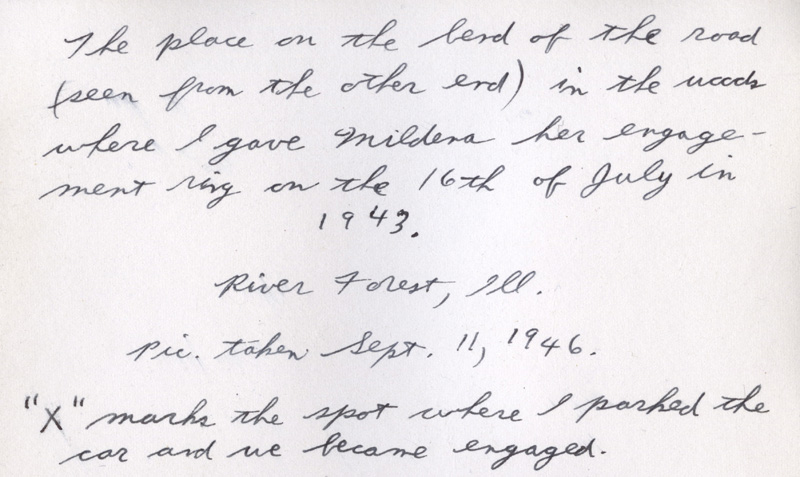 The place on the bend of the road
(seen from the other end) in the woods
where I gave Mildena her engage-
ment ring on the 16th of July in
1943.
River Forest, Ill.
Pic. taken Sept. 11, 1946.
"X" marks the spot where I parked the
car and we became engaged.